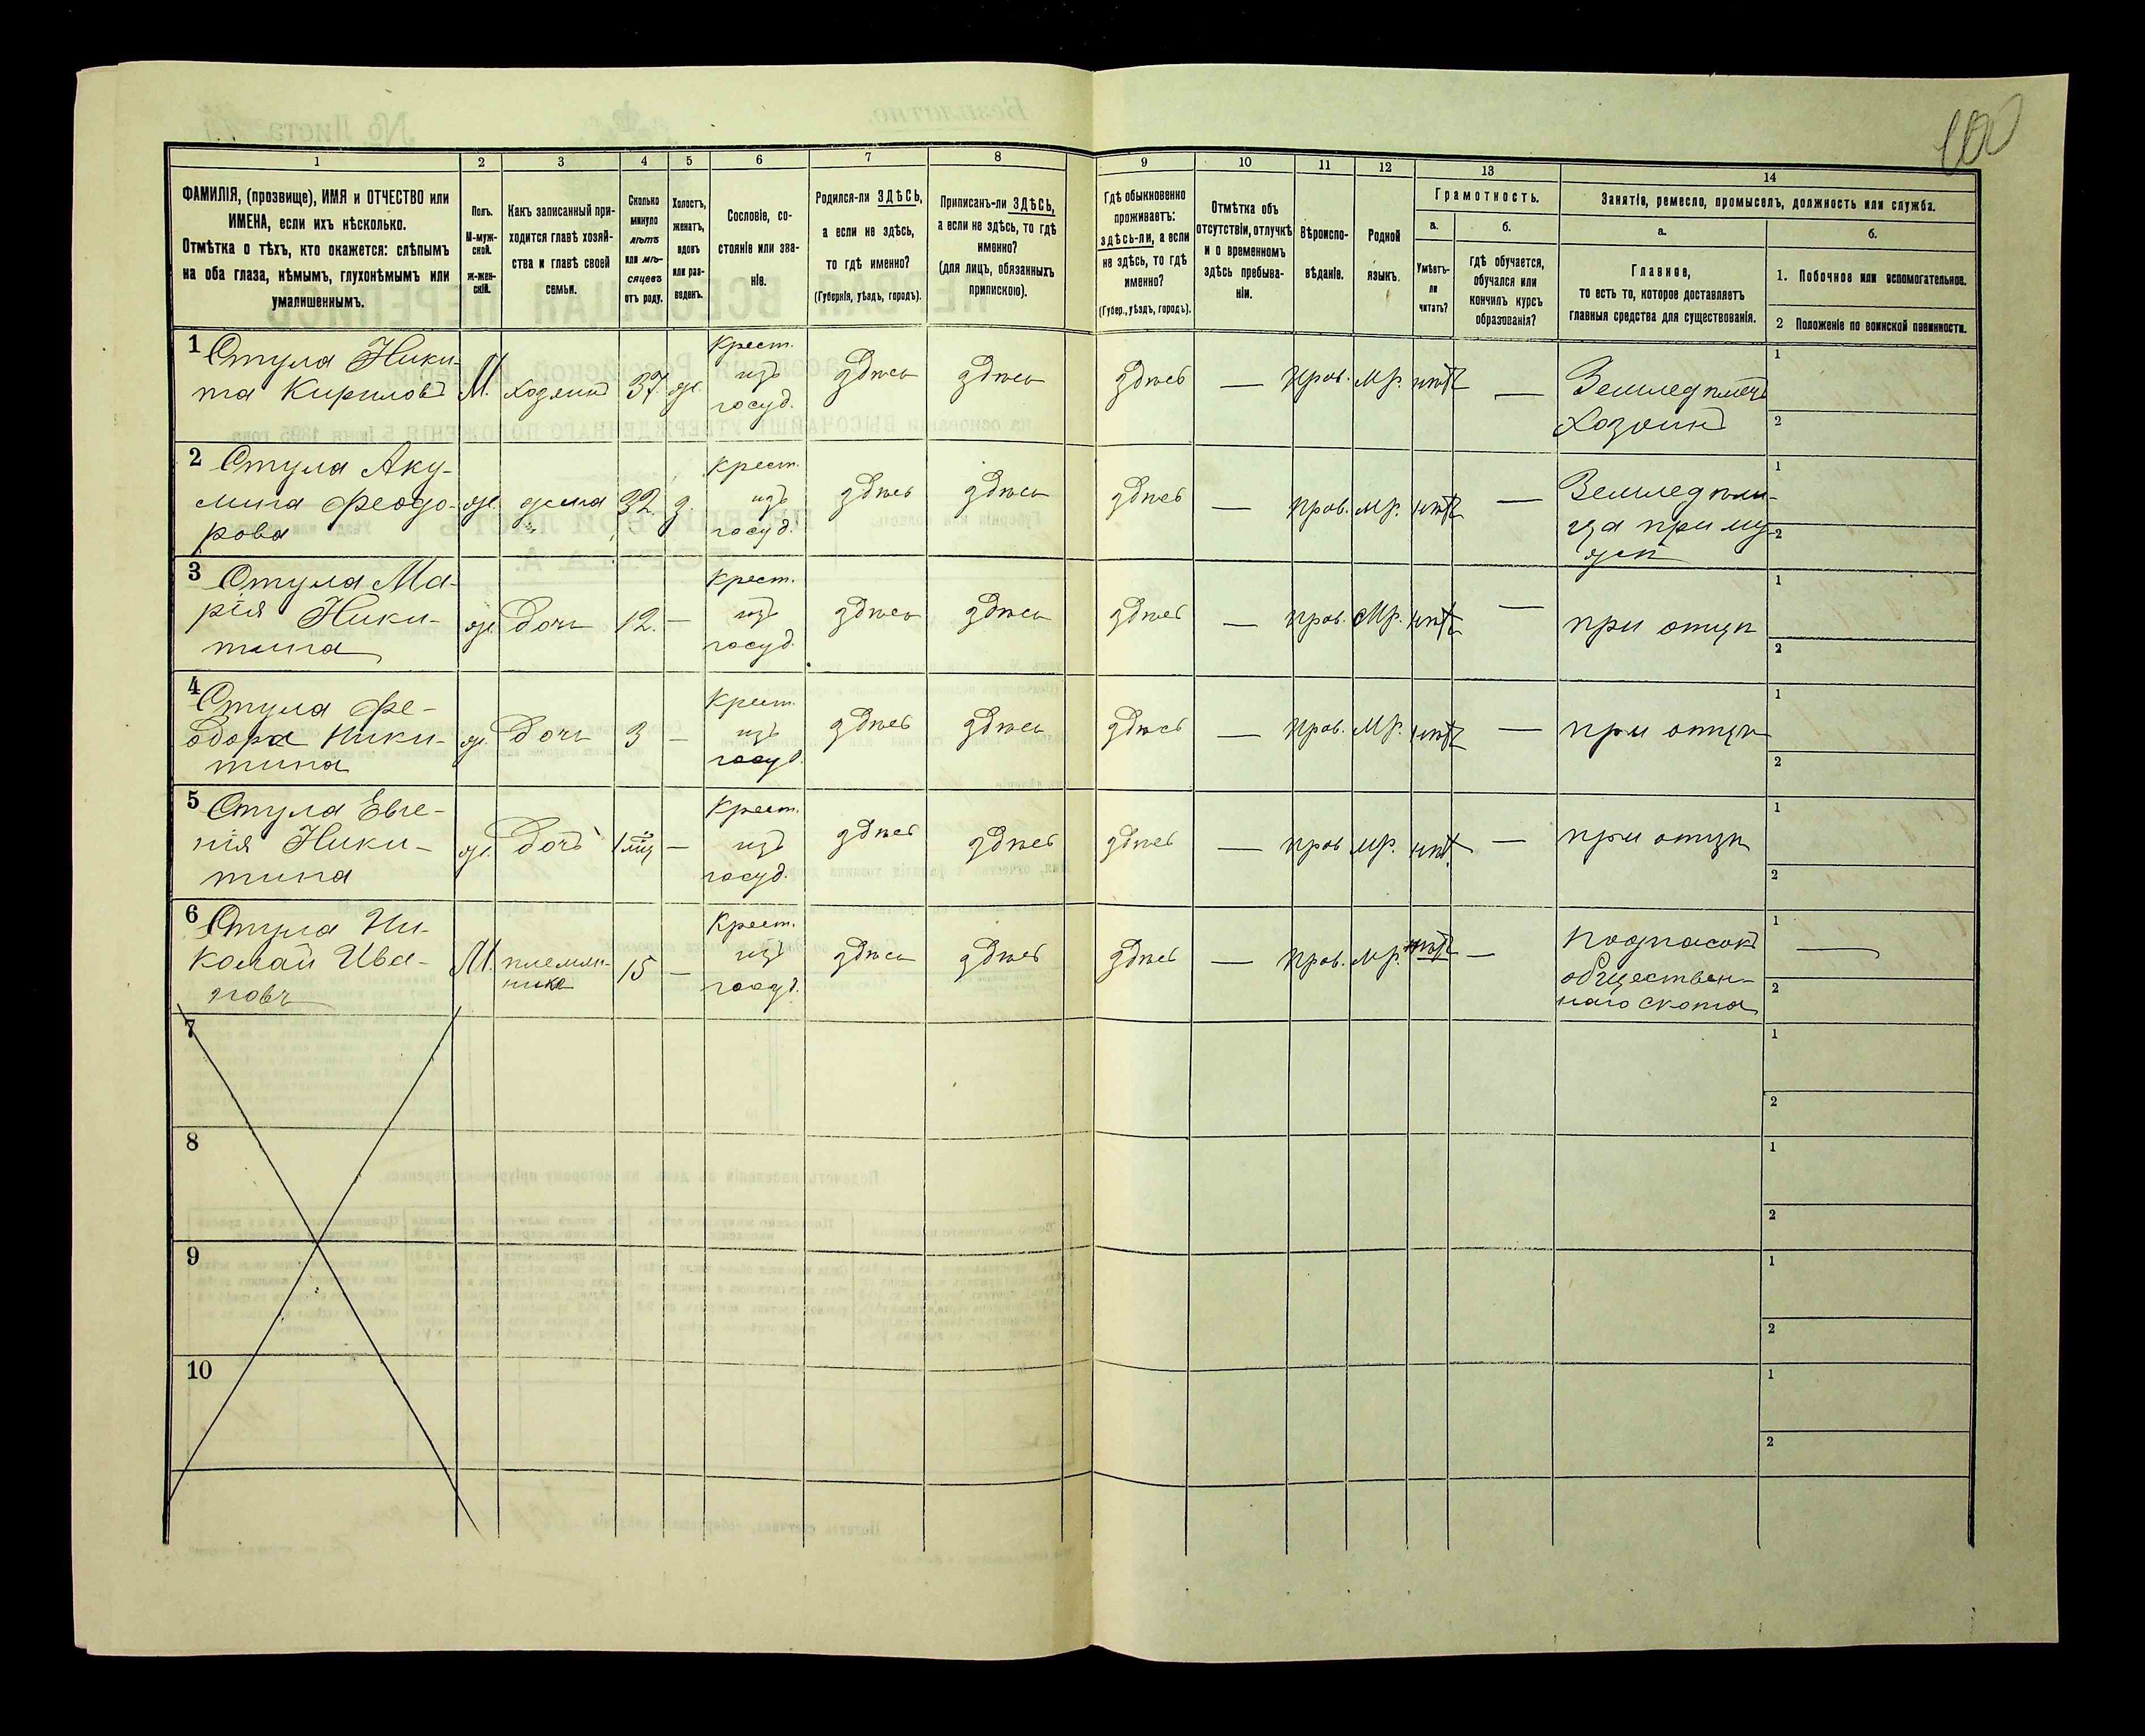 100
1 2 3 4 5 6 7 8 9 10 11 12 13 14
ФАМИЛІЯ, (прозвище), ИМЯ и ОТЧЕСТВО или
ИМЕНА, если ихъ нѣсколько.
Отмѣтка о тѣхъ, кто окажется: слѣпымъ
на оба глаза, нѣмымъ, глухонѣмымъ или
умалишеннымъ.
Полъ.
М-муж-
ской.
ж-жен-
скій.
Какъ записанный при-
ходится главѣ хозяй-
ства и главѣ своей
семьи.
Сколько
минуло
лѣтъ
или мѣ-
сяцевъ
отъ роду.
Холостъ,
женатъ,
вдовъ
или раз-
веденъ.
Сословіе, со-
стояніе или зва-
ніе.
Родился-ли ЗДѢСЬ,
а если не здѣсь,
то гдѣ именно?
(Губернія, уѣздъ, городъ).
Приписанъ-ли ЗДѢСЬ,
а если не здѣсь, то гдѣ
именно?
(для лицъ, обязанныхъ
припискою).
Гдѣ обыкновенно
проживаетъ:
здѣсь-ли, а если
не здѣсь, то гдѣ
именно?
(Губер., уѣздъ, городъ).
Отмѣтка объ
отсутствіи, отлучкѣ
и о временномъ
здѣсь пребыва-
ніи.
Вѣроиспо-
вѣданіе.
Родной
языкъ.
Грамотность.
а.
Умѣетъ-
ли
читать?
б.
гдѣ обучается,
обучался или
кончилъ курсъ
образованія?
Занятіе, ремесло, промыселъ, должность или служба.
а.
Главное,
то есть то, которое доставляетъ
главныя средства для существованія.
б.
1. Побочное или вспомогательное.
2 Положеніе по воинской повинности.
1 Стула Ники-
та Кириловъ
М. хозяинъ 37. ж.
Крест.
изъ
госуд.
здѣсь здѣсь здѣсь — прав. мр. нѣтъ —
Земледѣлецъ
хозяинъ
1
2
2 Стула Аку-
лина Феодо-
рова
ж. жена 32. з.
Крест.
изъ
госуд.
здѣсь здѣсь здѣсь — прав. мр. нѣтъ —
Земледѣли-
ца при му-
жѣ
1
2
3 Стула Ма-
рія Ники-
тина
ж. дочь 12. —
Крест.
изъ
госуд.
здѣсь здѣсь здѣсь — прав. мр. нѣтъ —
при отцѣ
1
2
4 Стула Фе-
одора Ники-
тина
ж. дочь 3 —
Крест.
изъ
госуд.
здѣсь здѣсь здѣсь — прав. мр. нѣтъ —
при отцѣ
1
2
5 Стула Евге-
нія Ники-
тина
ж. дочь 1 мѣц —
Крест.
изъ
госуд.
здѣсь здѣсь здѣсь — прав мр. нѣт. —
при отцѣ
1
2
6 Стула Ни-
колай Ива-
новъ
М. племян-
никъ
15 —
Крест.
изъ
госуд.
здѣсь здѣсь здѣсь — прав. мр. нѣтъ —
подпасокъ
обществен-
наго скота
1 —
2
7
1
2
8
1
2
9
1
2
10
1
2